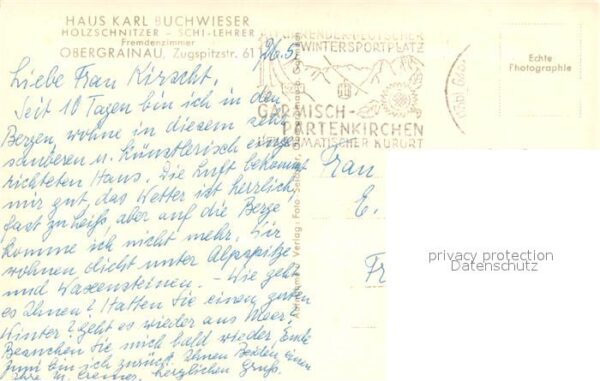 HAUS KARL BUCHWIESER
HOLZSCHNITZER - SCHI-LEHRER
Fremdenzimmer
OBERGRAINAU, Zugspitzstr. 61
26.5.
Liebe Frau Kirscht.
Seit 10 Tagen bin ich in den
Bergen, wohne in diesem sehr
sauberen u. künstlerisch einge-
richteten Haus. Die Luft bekommt
mir gut, das Wetter ist herrlich,
fast zu heiß, aber auf die Berge
komme ich nicht mehr. Wir
wohnen dicht unter Alpspitze
und Waxensteinen. - Wie geht
es Ihnen? Hatten Sie einen guten
Winter? Geht es wieder ans Meer?
Besuchen Sie mich bald wieder, Ende
Juni bin ich zurück. Ihnen Beiden einen
herzlichen Gruß.
WINTERSPORTPLATZ
GARMISCH-
PARTENKIRCHEN
HEILKLIMATISCHER KURORT
Echte
Photographie
Frau
E.
Fr
privacy protection
Datenschutz